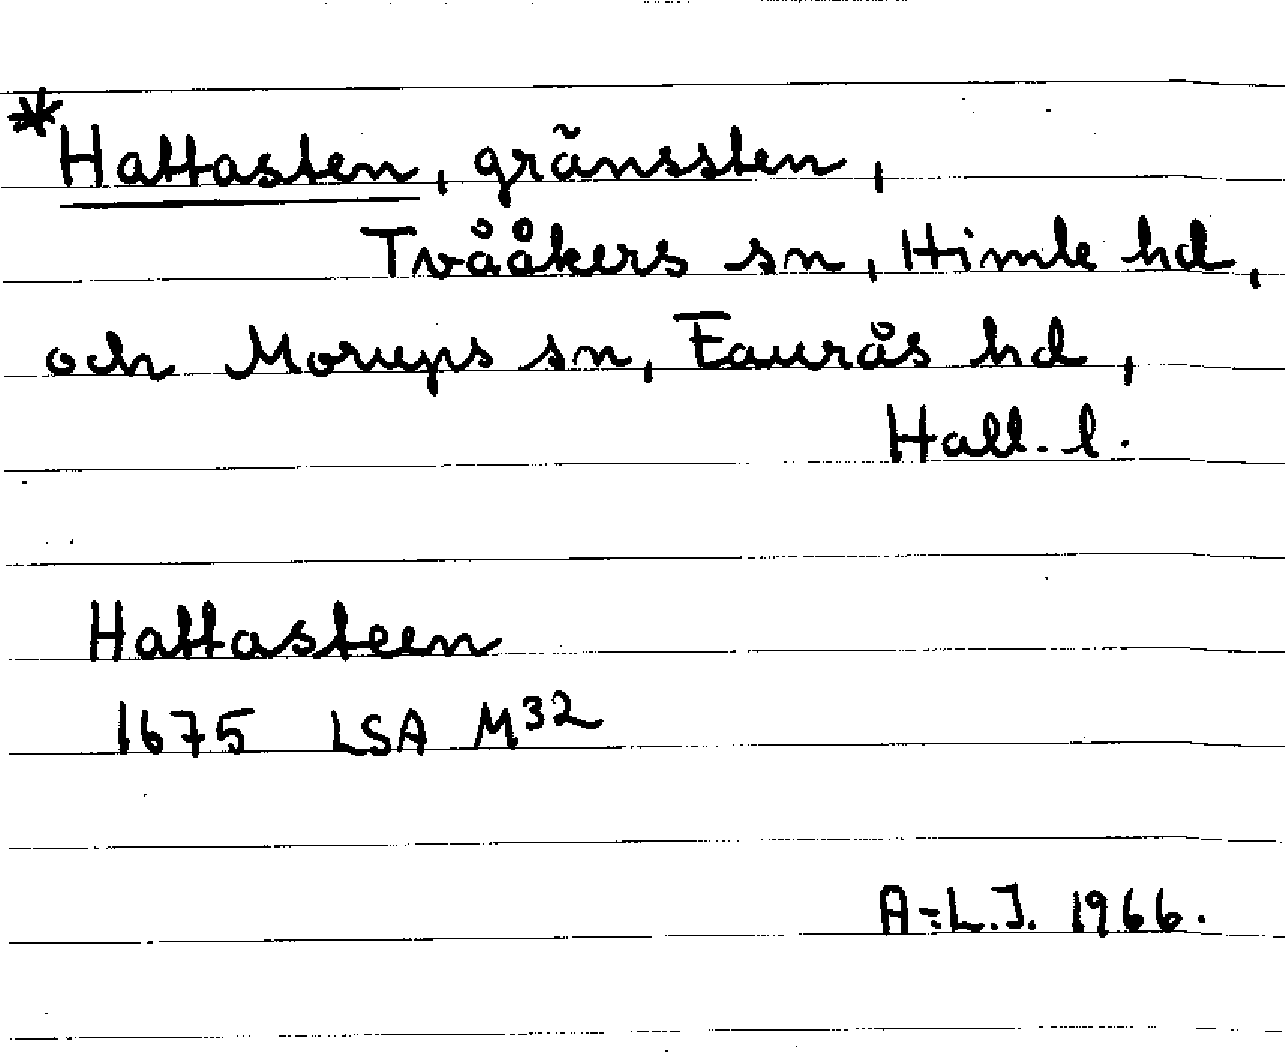 *Hattasten, gränssten,
Tvååkers sn, Himle hd,
och Morups sn, Faurås hd,
Hall. l.
Hattasteen
1675 LSA M32
A-L.J. 1966.